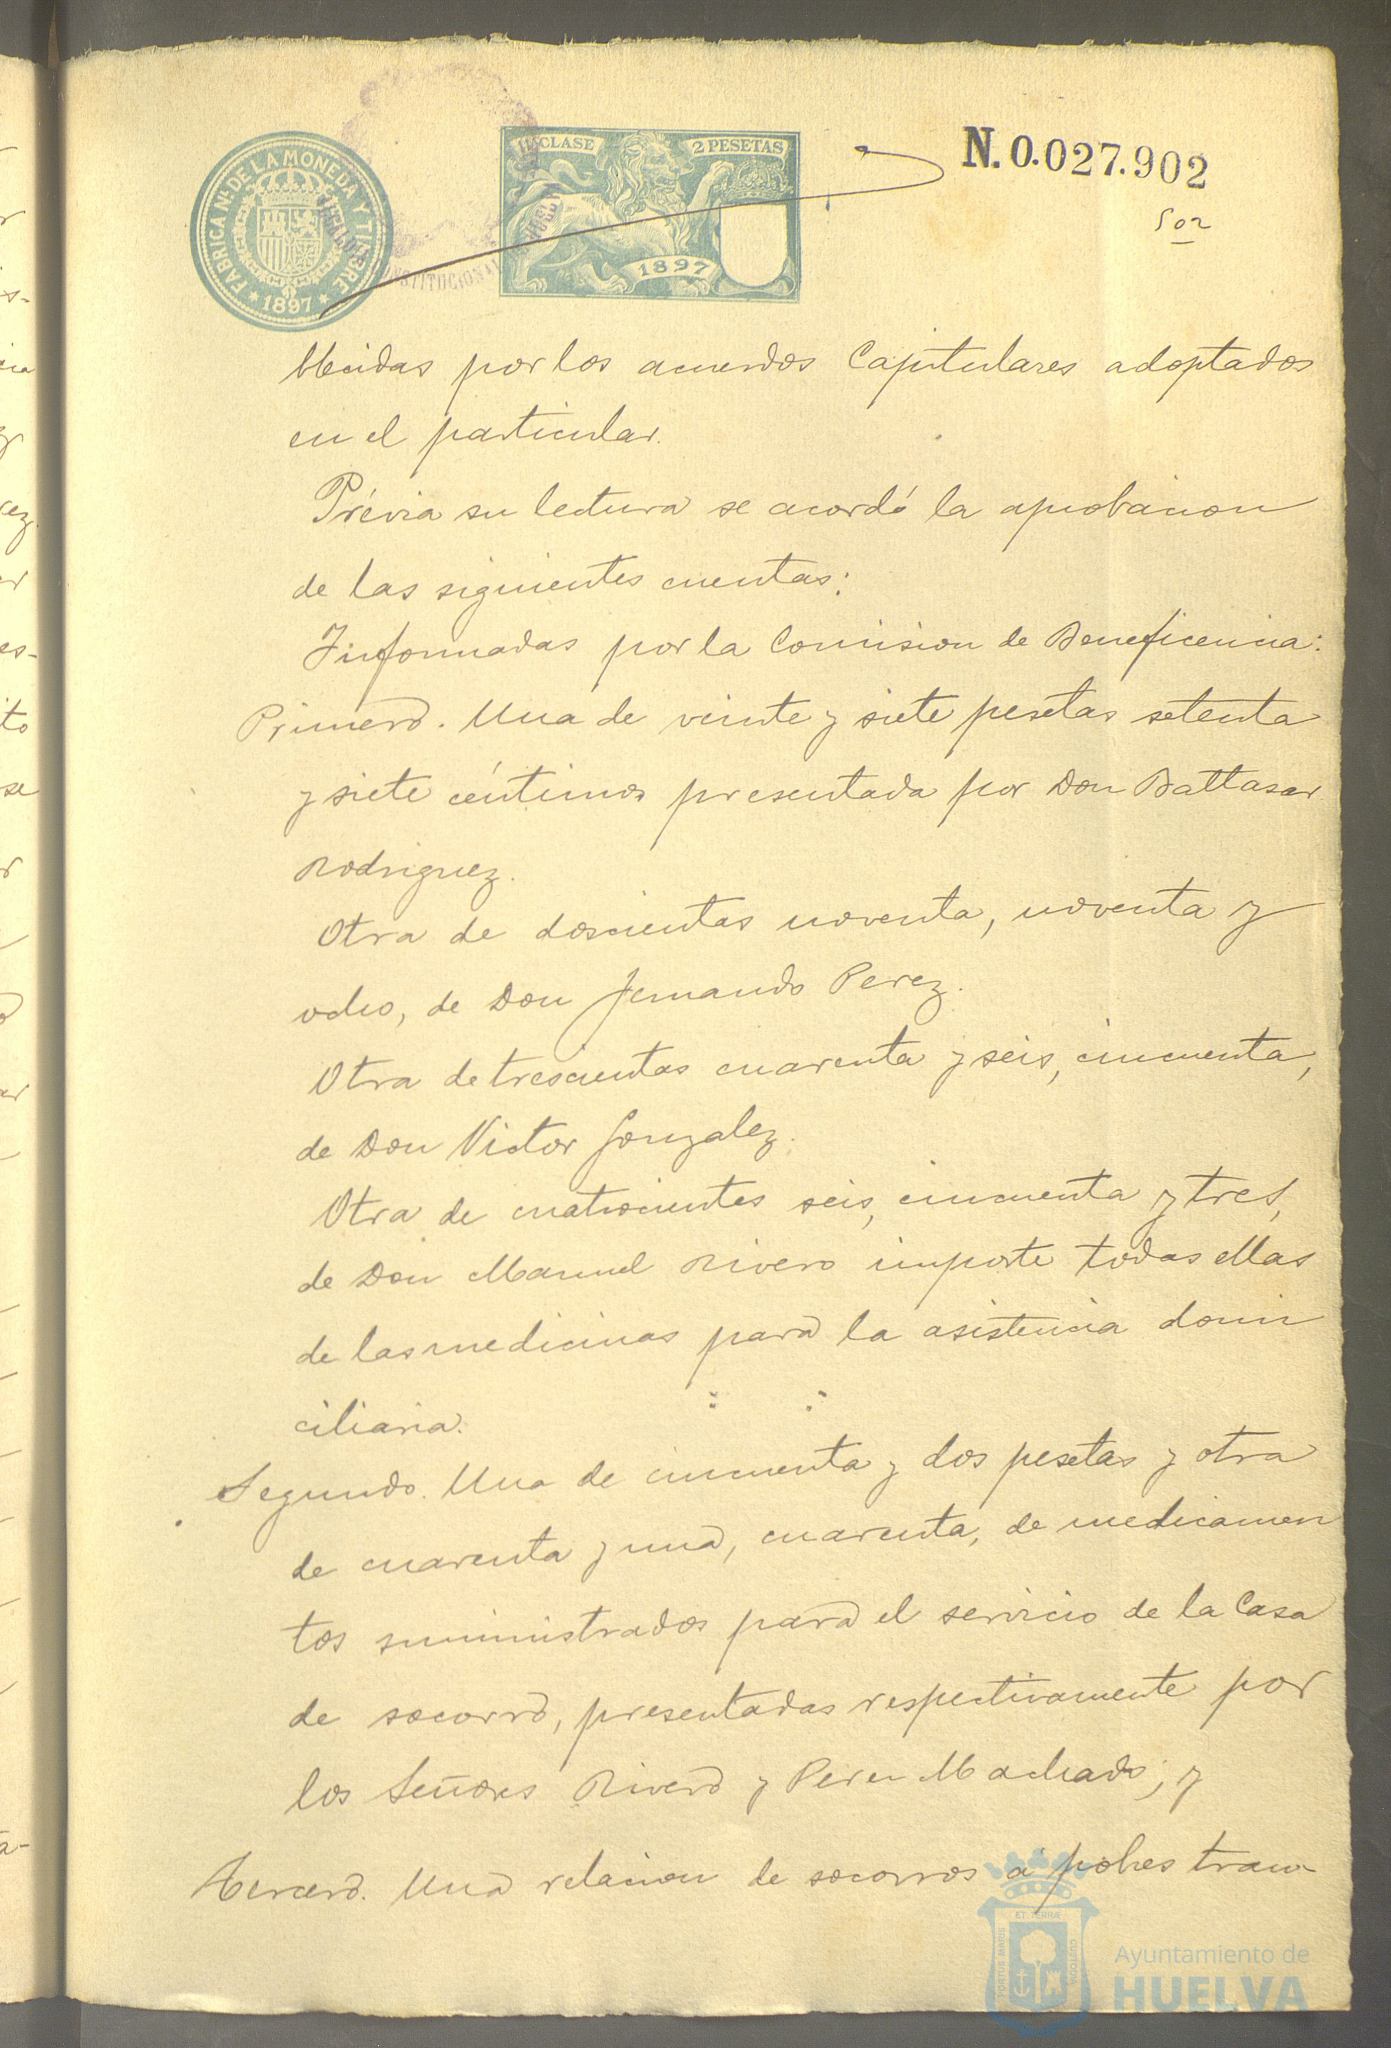 FABRICA Nal. DE LA MONEDA Y TIMBRE
* 1897 *
11ª CLASE 2 PESETAS
1897
ALCALDIA CONSTITUCIONAL HUELVA
N.0.027.902
502
blecidas por los acuerdos Capitulares adoptados
en el particular.
Prévia su lectura se acordó la aprobacion
de las siguientes cuentas:
Informadas por la Comision de Beneficencia:
Primero. Una de veinte y siete pesetas setenta
y siete céntimos presentada por Don Baltasar
Rodriguez.
Otra de doscientas noventa, noventa y
ocho, de Don Fernando Perez.
Otra de trescientas cuarenta y seis, cincuenta,
de Don Victor Gonzalez.
Otra de cuatrocientes seis, cincuenta y tres,
de Don Manuel Rivero importe todas ellas
de las medicinas para la asistencia domi
ciliaria.
Segundo. Una de cincuenta y dos pesetas y otra
de cuarenta y una, cuarenta, de medicamen
tos suministrados para el servicio de la Casa
de socorro, presentadas respectivamente por
los Señores Rivero y Perez Machado; y
Tercero. Una relacion de socorros á pobres tran-
PORTUS MARIS ET TERRÆ CUSTODIA
Ayuntamiento de
HUELVA